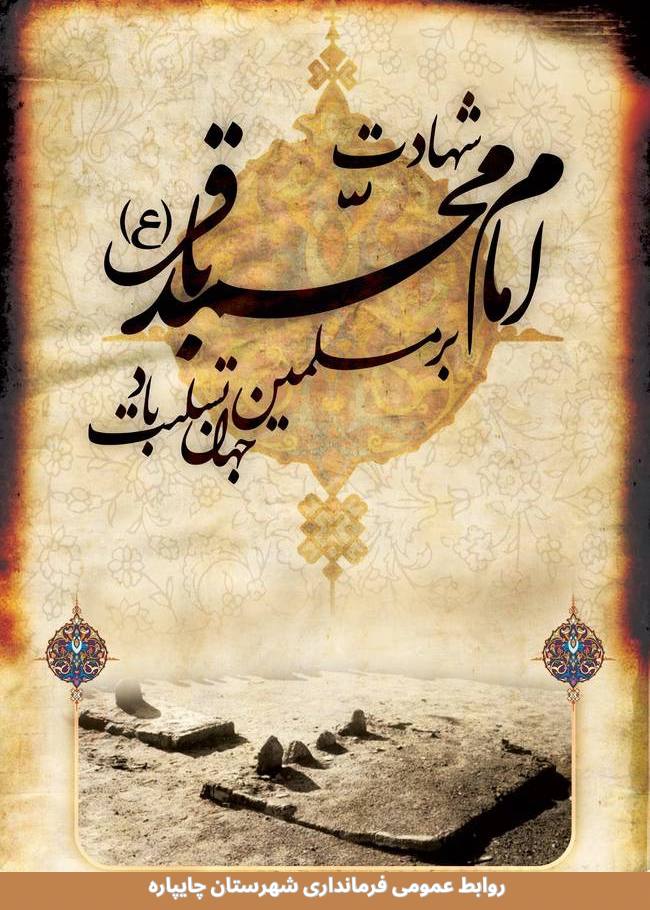 شهادت
امام محمّد باقر (ع)
بر مسلمین
جهان تسلیت باد
روابط عمومی فرمانداری شهرستان چایپاره